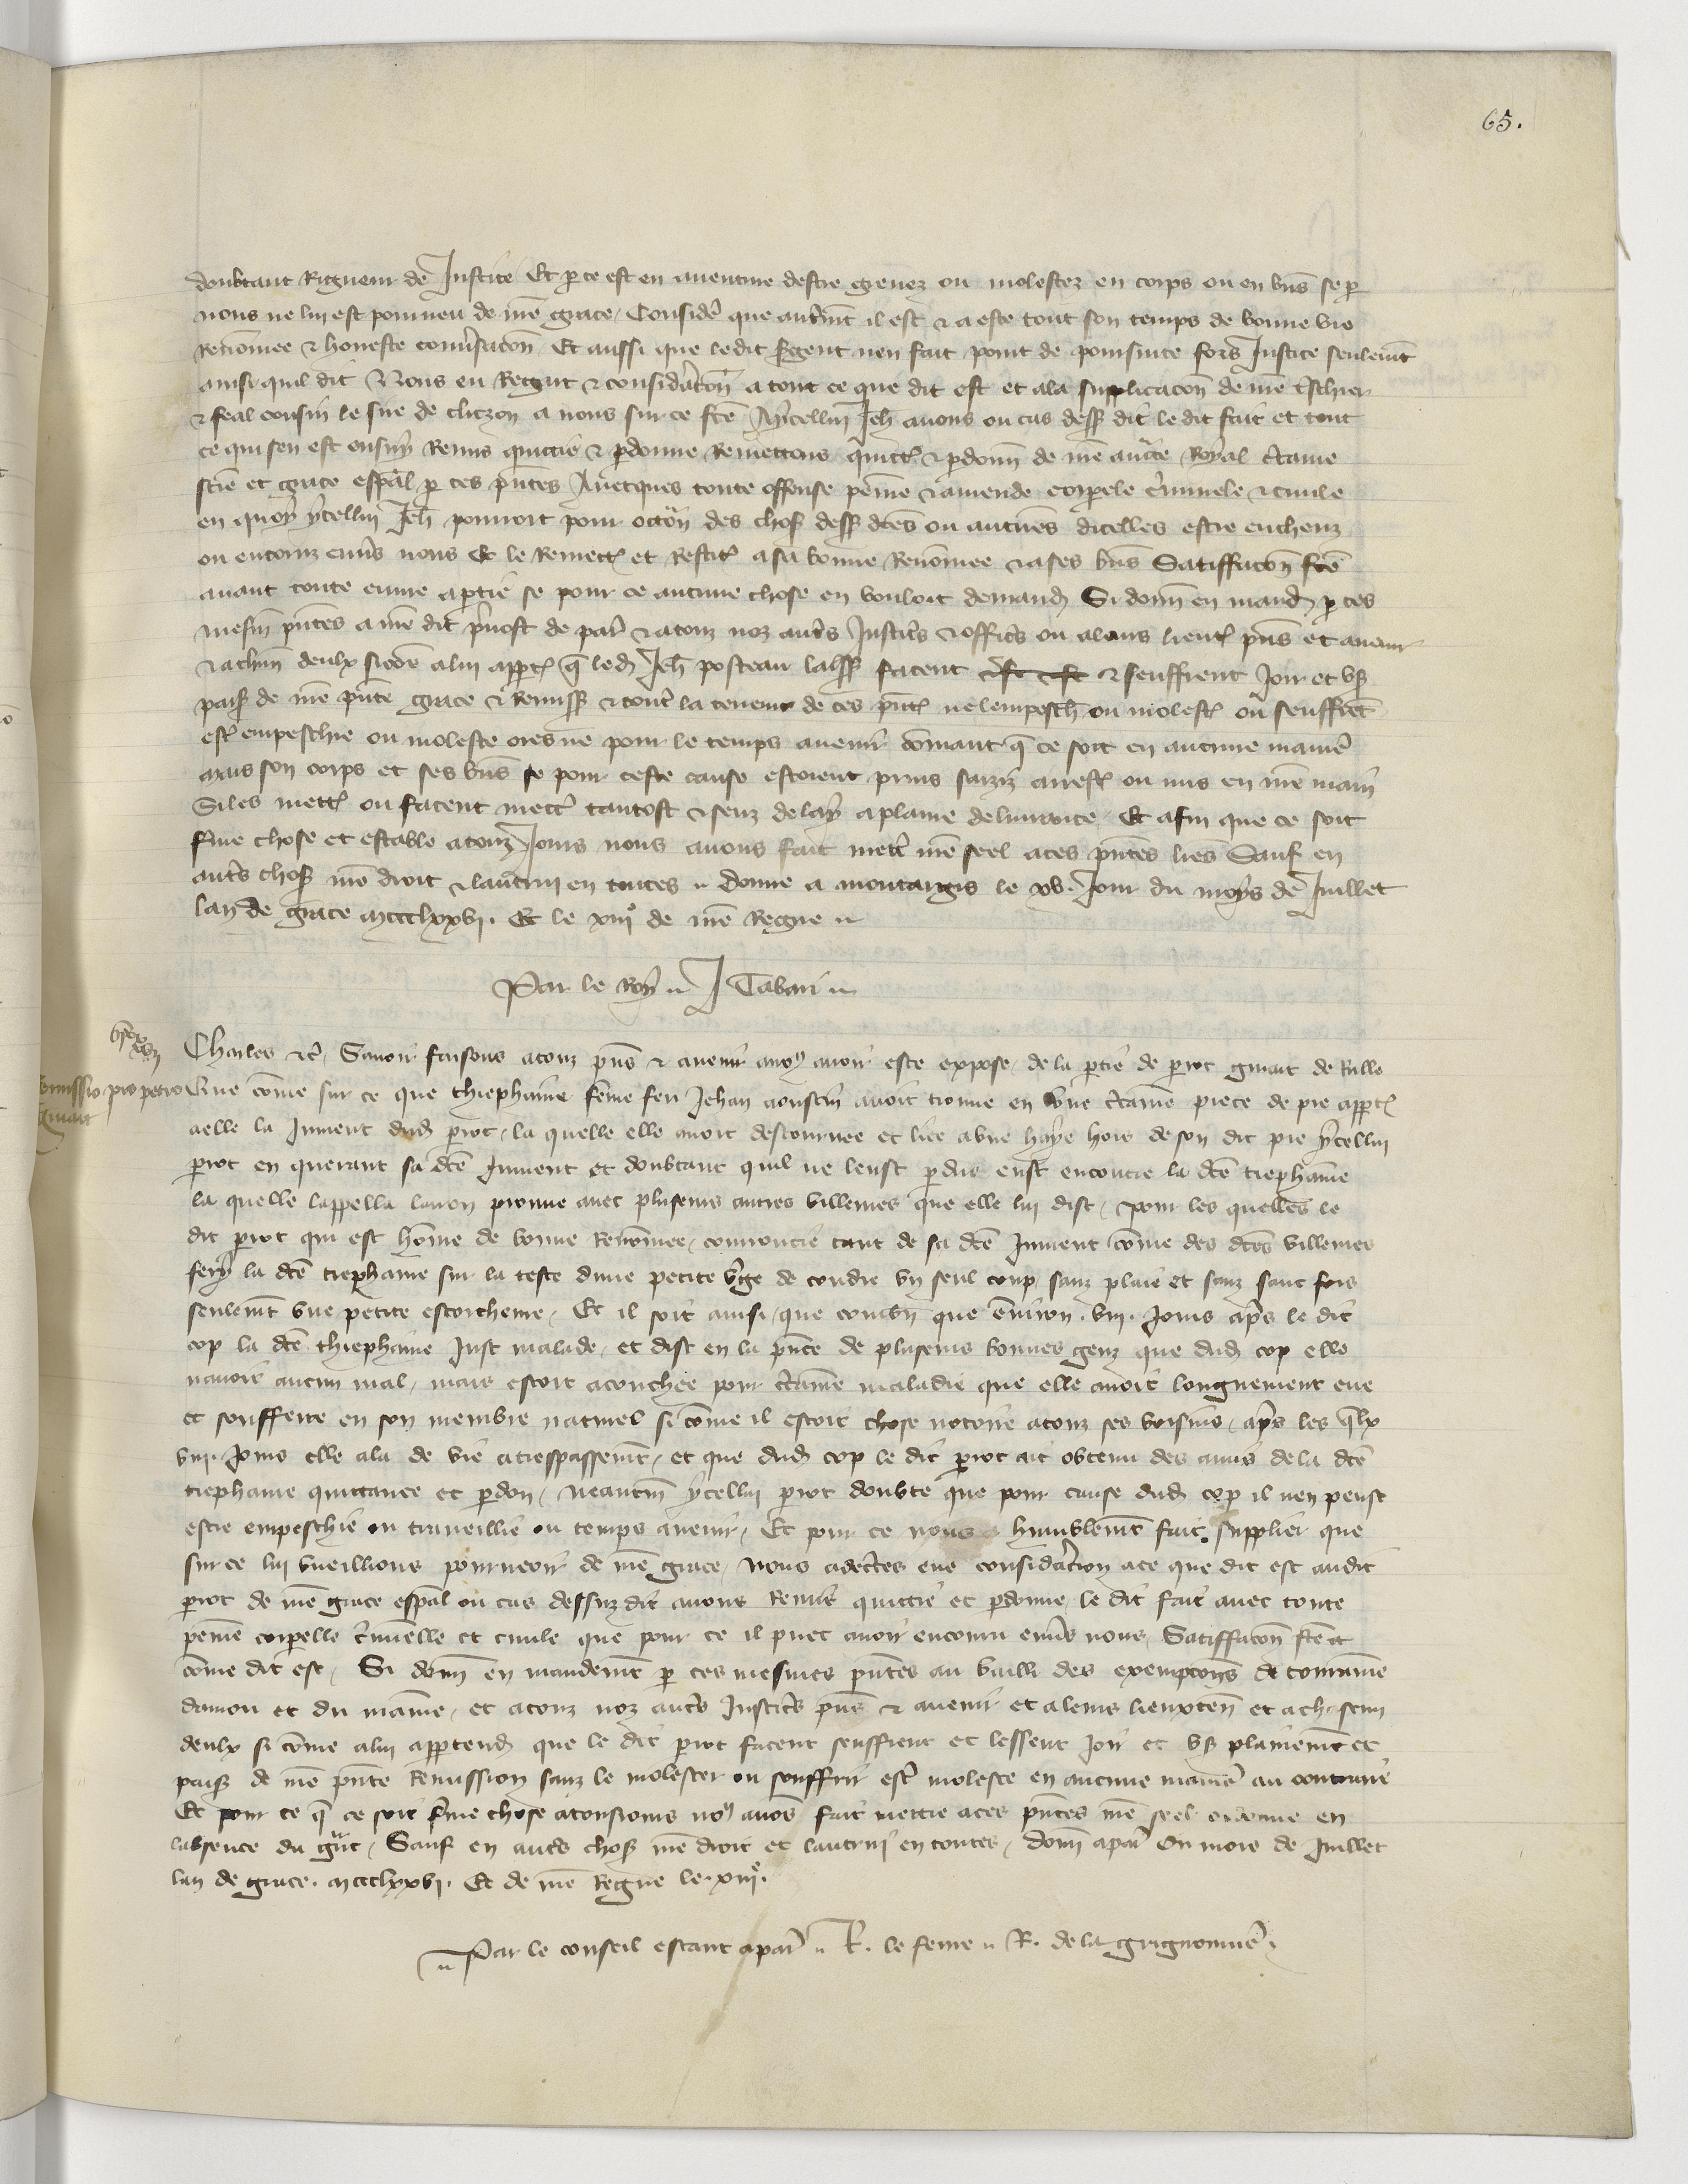 65.
doubtant Rigueur de Justice Et p ce est en aventure destre grevez ou molestez en corps ou en bns se p
nous ne lui est pourveu de nre grace Consideré que autremt il est & a este tout son temps de bonne vie
Renommee & honeste conversacon Et aussi que ledit sergent nen fait point de poursuite fors Justice seulemt
ainsi quil dit Nous eu Regart & consideracon a tout ce que dit est et ala supplicacon de nre treschier
& feal cousin le sire de cliczon a nous sur ce fcte Aycellui Jeh avons ou cas dess dit le dit fait et tout
ce qui sen est ensuy Remis quictie & pdonne Remettons quict & pdonn de nre aucte Royal ctaine
scien et grace espal p ces pntes Avecques toute offense peine & amende corporele criminele & civile
en quoy ycellui Jeh pourroit pour occon des chos dess dctes ou aucunes dicelles estre encheuz
ou encouruz envs nous Et le Remett et Restit a sa bonne Renommee & a ses bns Satiffacon fcte
avant toute euvre a ptie se pour ce aucune chose en vouloit demand Si donn en mand p ces
mesm pntes a nre dit prevost de par & a touz noz autrs Justics & offics ou a leurs lieut pns et avenir
& a chun deulx sicome a lui apprt q led Jeh posteau laiss facent & seuffrent Joir et us
pais de nre pnte grace & Remiss & contr la teneur de ces pnt ne lempesch ou molest ou seuffret
est empeschie ou moleste ores ne pour le temps avenir comant q ce soit en aucune maniere
mais son corps et ses bns se pour ceste cause estoient prins saiziz arrest ou mis en nre main
Si les mett ou facent mectr tantost & senz delay a plaine delivrance Et afin que ce soit
ferme chose et estable a touz Jours nous avons fait mectr nre seel a ces pntes lres Sauf en
autrs chos nre droit & lautrui en toutes Donne a montargis le xv. Jour du moys de Juillet
lan de grace mccclxxvj. Et le xiije de nre Regne
Par le Roy J Tabari
Charles &c Savoir faisons a touz pns & avenir a nous avoir este expose de la ptie de prot guiart de Rulle
Remissio pro petro
Guiart
Que come sur ce que thiephaine feme feu Jehan aoustin avoit trouve en une ctaine piece de pre apprt
a elle la Jument dud prot la quelle elle avoit destournee et liee a une haye hors de son dit pre ycellui
prot en querant sa dcte Jument et doubtant quil ne leust pdue eust encontre la dcte tiephaine
la quelle lappella larron prouve avec pluseurs autres villenies que elle lui dist pour les quelles le
dit prot qui est home de bonne Renommee courroucie tant de sa dcte Jument come des dctes villenies
fery la dcte tiephaine sur la teste dune petite vge de coudre un seul coup sanz plaie et sanz sanc fors
seulemt une petite escorcheure Et il soit ainsi que combn que environ .viij. Jours aps le dit
cop la dcte thiephaine Just malade et dist en la pnce de pluseurs bonnes genz que dud cop elle
navoit aucun mal mais estoit acouchee pour ctaine maladie que elle avoit longuement eue
et soufferte en son membre naturel si come il estoit chose notoire a touz ses voisins aps les qlx
viij. Jours elle ala de vie a trespassemt et que dud cop le dit prot ait obtenu des amis de la dcte
tiephaine quittance et pdon Neantm ycellui prot doubte que pour cause dud cop il nen peust
estre empeschie ou traveillie ou temps avenir Et pour ce nous a humblemt fait supplier que
sur ce lui vueillions pourveoir de nre grace Nous adectes eue consideracion a ce que dit est audit
prot de nre grace espal ou cas dessuz dit avons Remis quittie et pdonne le dit fait avec toute
peine corporelle criminelle et civile que pour ce il puet avoir encouru envs nous Satiffacon fcte et
come dit est Si donn en mandemt p ces mesmes pntes au bailli des exempcions de touraine
danjou et du maine et a touz noz autrs Justics pns & avenir et a leurs lieuxten et a chascun
deulx si come a lui apptend que le dit prot facent seuffrent et lessent Joir et us plainemt et
pais de nre pnte Remission sanz le molester ou souffrir est moleste en aucune maniere au contraire
Et pour ce q ce soit ferme chose a tousjours nous avons fait mettre a ces pntes nre seel ordenne en
labsence du grant Sauf en autrs chos nre droit et lautrui en toutes donn a par Ou mois de Juillet
lan de grace. mccclxxvj. Et de nre Regne le .xiije.
Par le conseil estant a par . le feme R. de la grignonniere